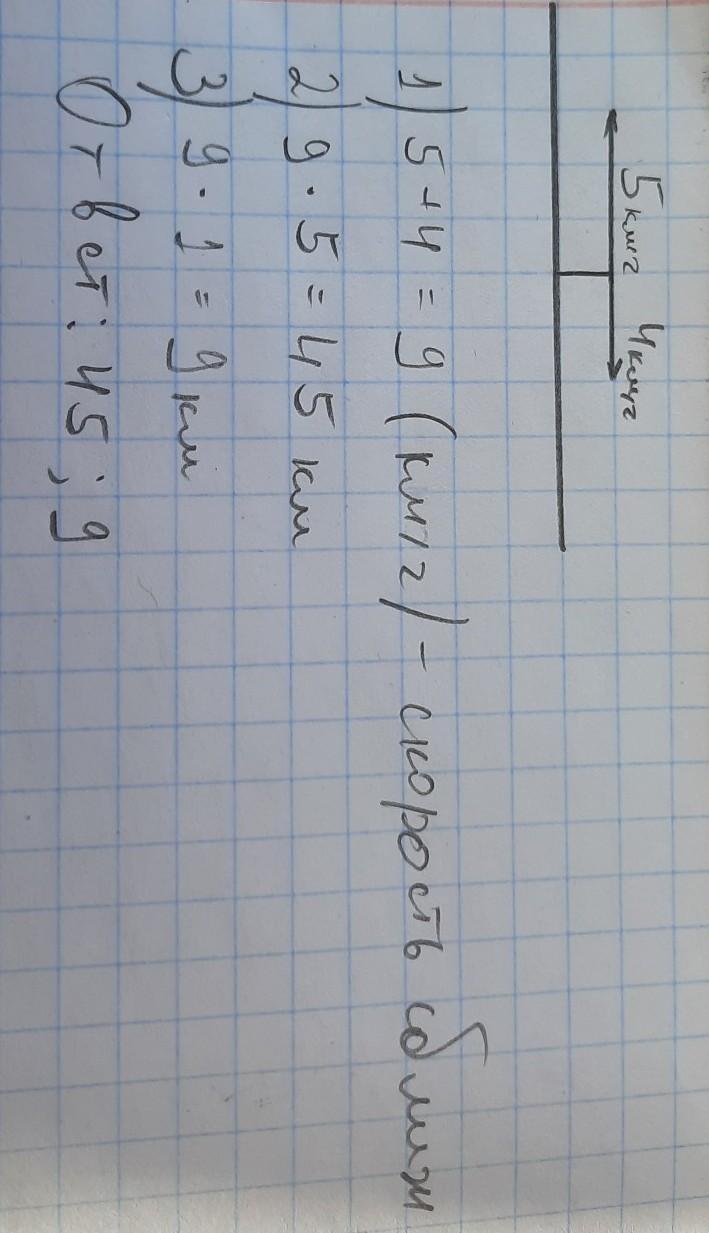 5 км/ч 4 км/ч
1) 5+4=9 (км/ч) - скорость сближ
2) 9·5=45 км
3) 9·1=9 км
Ответ: 45; 9